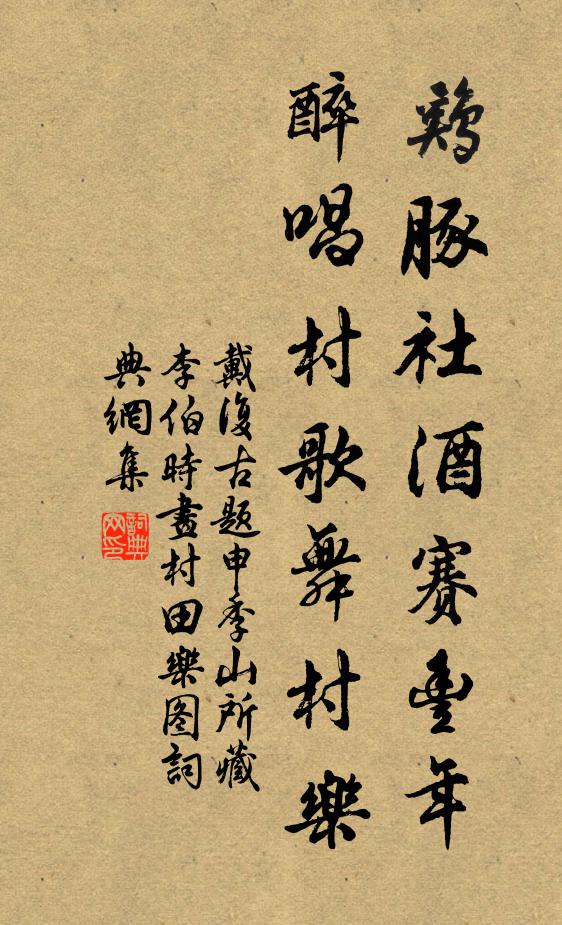 鷄豚社酒賽豐年
醉唱村歌舞村樂
戴復古題申季山所藏
李伯時畫村田樂图詞
典網集
詞典
网印